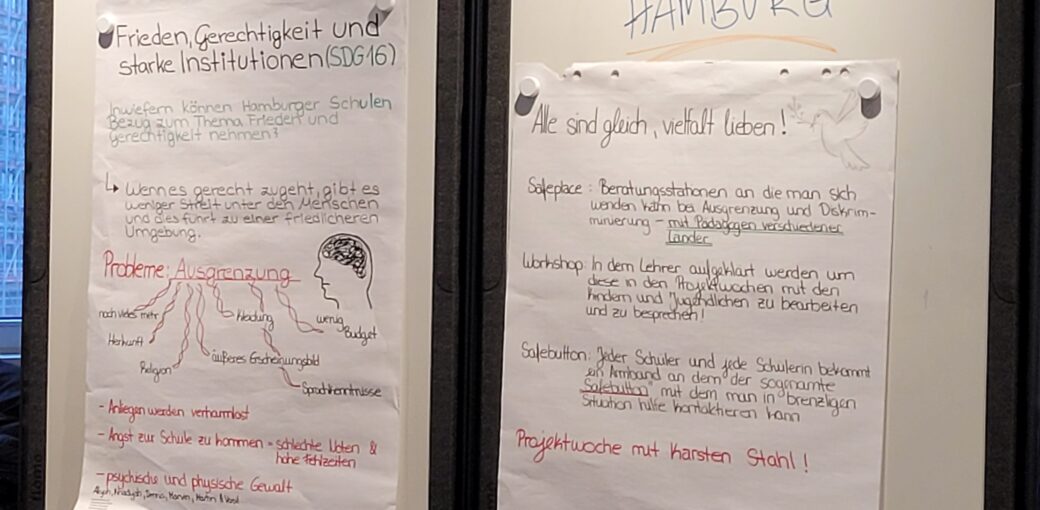 Frieden, Gerechtigkeit und
starke Institutionen (SDG16)
Inwiefern können Hamburger Schulen
Bezug zum Thema Frieden und
Gerechtigkeit nehmen?
↳ Wenn es gerecht zugeht, gibt es
weniger Streit unter den Menschen
und dies führt zu einer friedlicheren
Umgebung.
Probleme: Ausgrenzung
noch vieles mehr
Herkunft
Religion
Kleidung
äußeres Erscheinungsbild
Sprachkenntnisse
wenig
Budget
- Anliegen werden verharmlost
- Angst zur Schule zu kommen = schlechte Noten &
hohe Fehlzeiten
- psychische und physische Gewalt
HAMBURG
Alle sind gleich, vielfalt lieben!
Safeplace: Beratungsstationen an die man sich
wenden kann bei Ausgrenzung und Diskrim-
minierung - mit Pädagogen verschiedener
Länder
Workshop: In dem Lehrer aufgeklärt werden um
diese in den Projektwochen mit den
Kindern und Jugendlichen zu bearbeiten
und zu besprechen!
Safebutton: Jeder Schüler und jede Schülerin bekommt
ein Armband an dem der sogenannte
"Safebutton" mit dem man in brenzligen
Situation hilfe kontaktieren kann
Projektwoche mit Karsten Stahl!